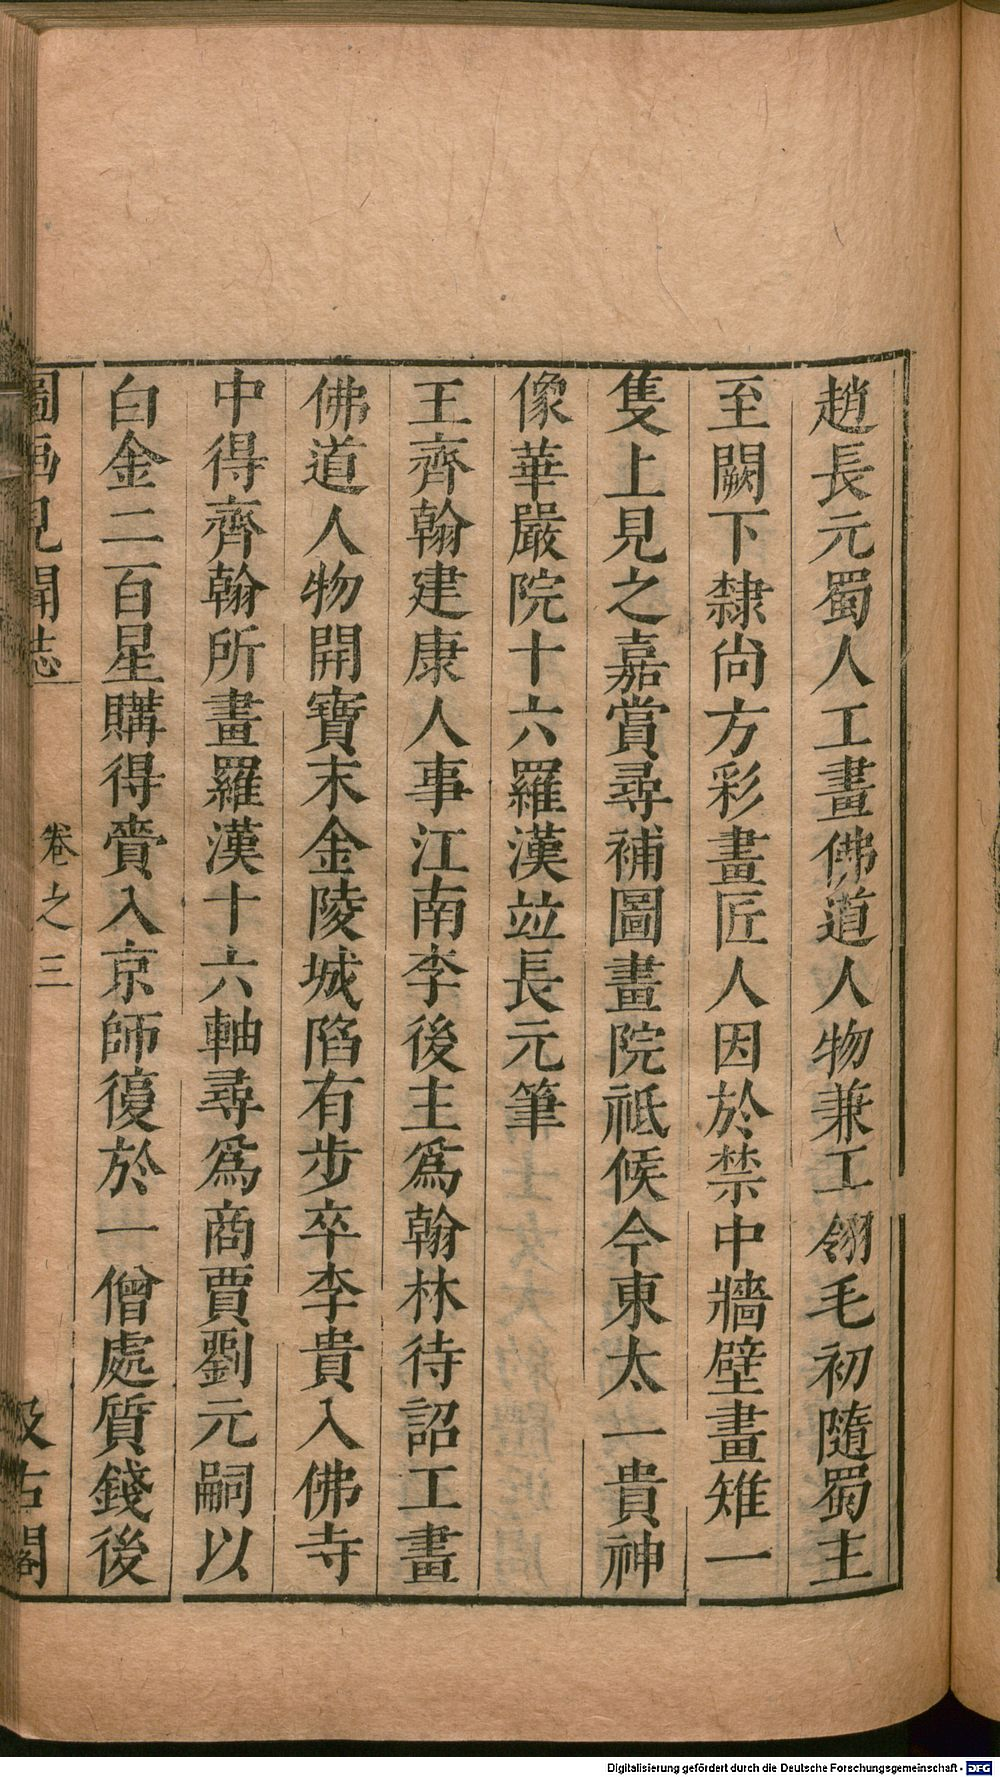 趙長元蜀人工畫佛道人物兼工翎毛初隨蜀主
至闕下隸尙方彩畫匠人因於禁中牆壁畫雉一
隻上見之嘉賞尋補圖畫院祗候今東太一貴神
像華嚴院十六羅漢竝長元筆
王齊翰建康人事江南李後主爲翰林待詔工畫
佛道人物開寶末金陵城陷有步卒李貴入佛寺
中得齊翰所畫羅漢十六軸尋爲商賈劉元嗣以
白金二百星購得賫入京師復於一僧處質錢後
圖畫見聞志 卷之三 汲古閣
Digitalisierung gefördert durch die Deutsche Forschungsgemeinschaft - DFG